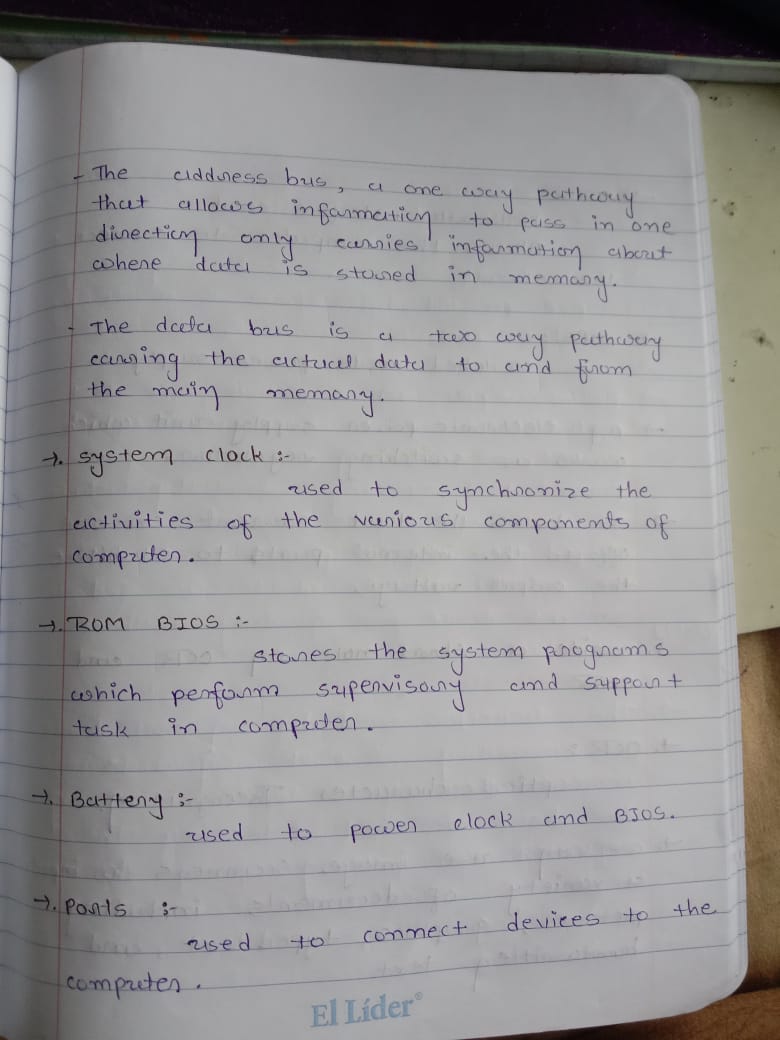 - The address bus, a one way pathway
that allows information to pass in one
direction only carries information about
where data is stored in memory.
- The data bus is a two way pathway
carring the actual data to and from
the main memory.
→. system clock :-
used to synchronize the
activities of the various components of
computer.
→. ROM BIOS :-
stores the system programs
which perform supervisory and support
task in computer.
→. Battery :-
used to power clock and BIOS.
→. Ports :-
used to connect devices to the
computer.
El Líder®